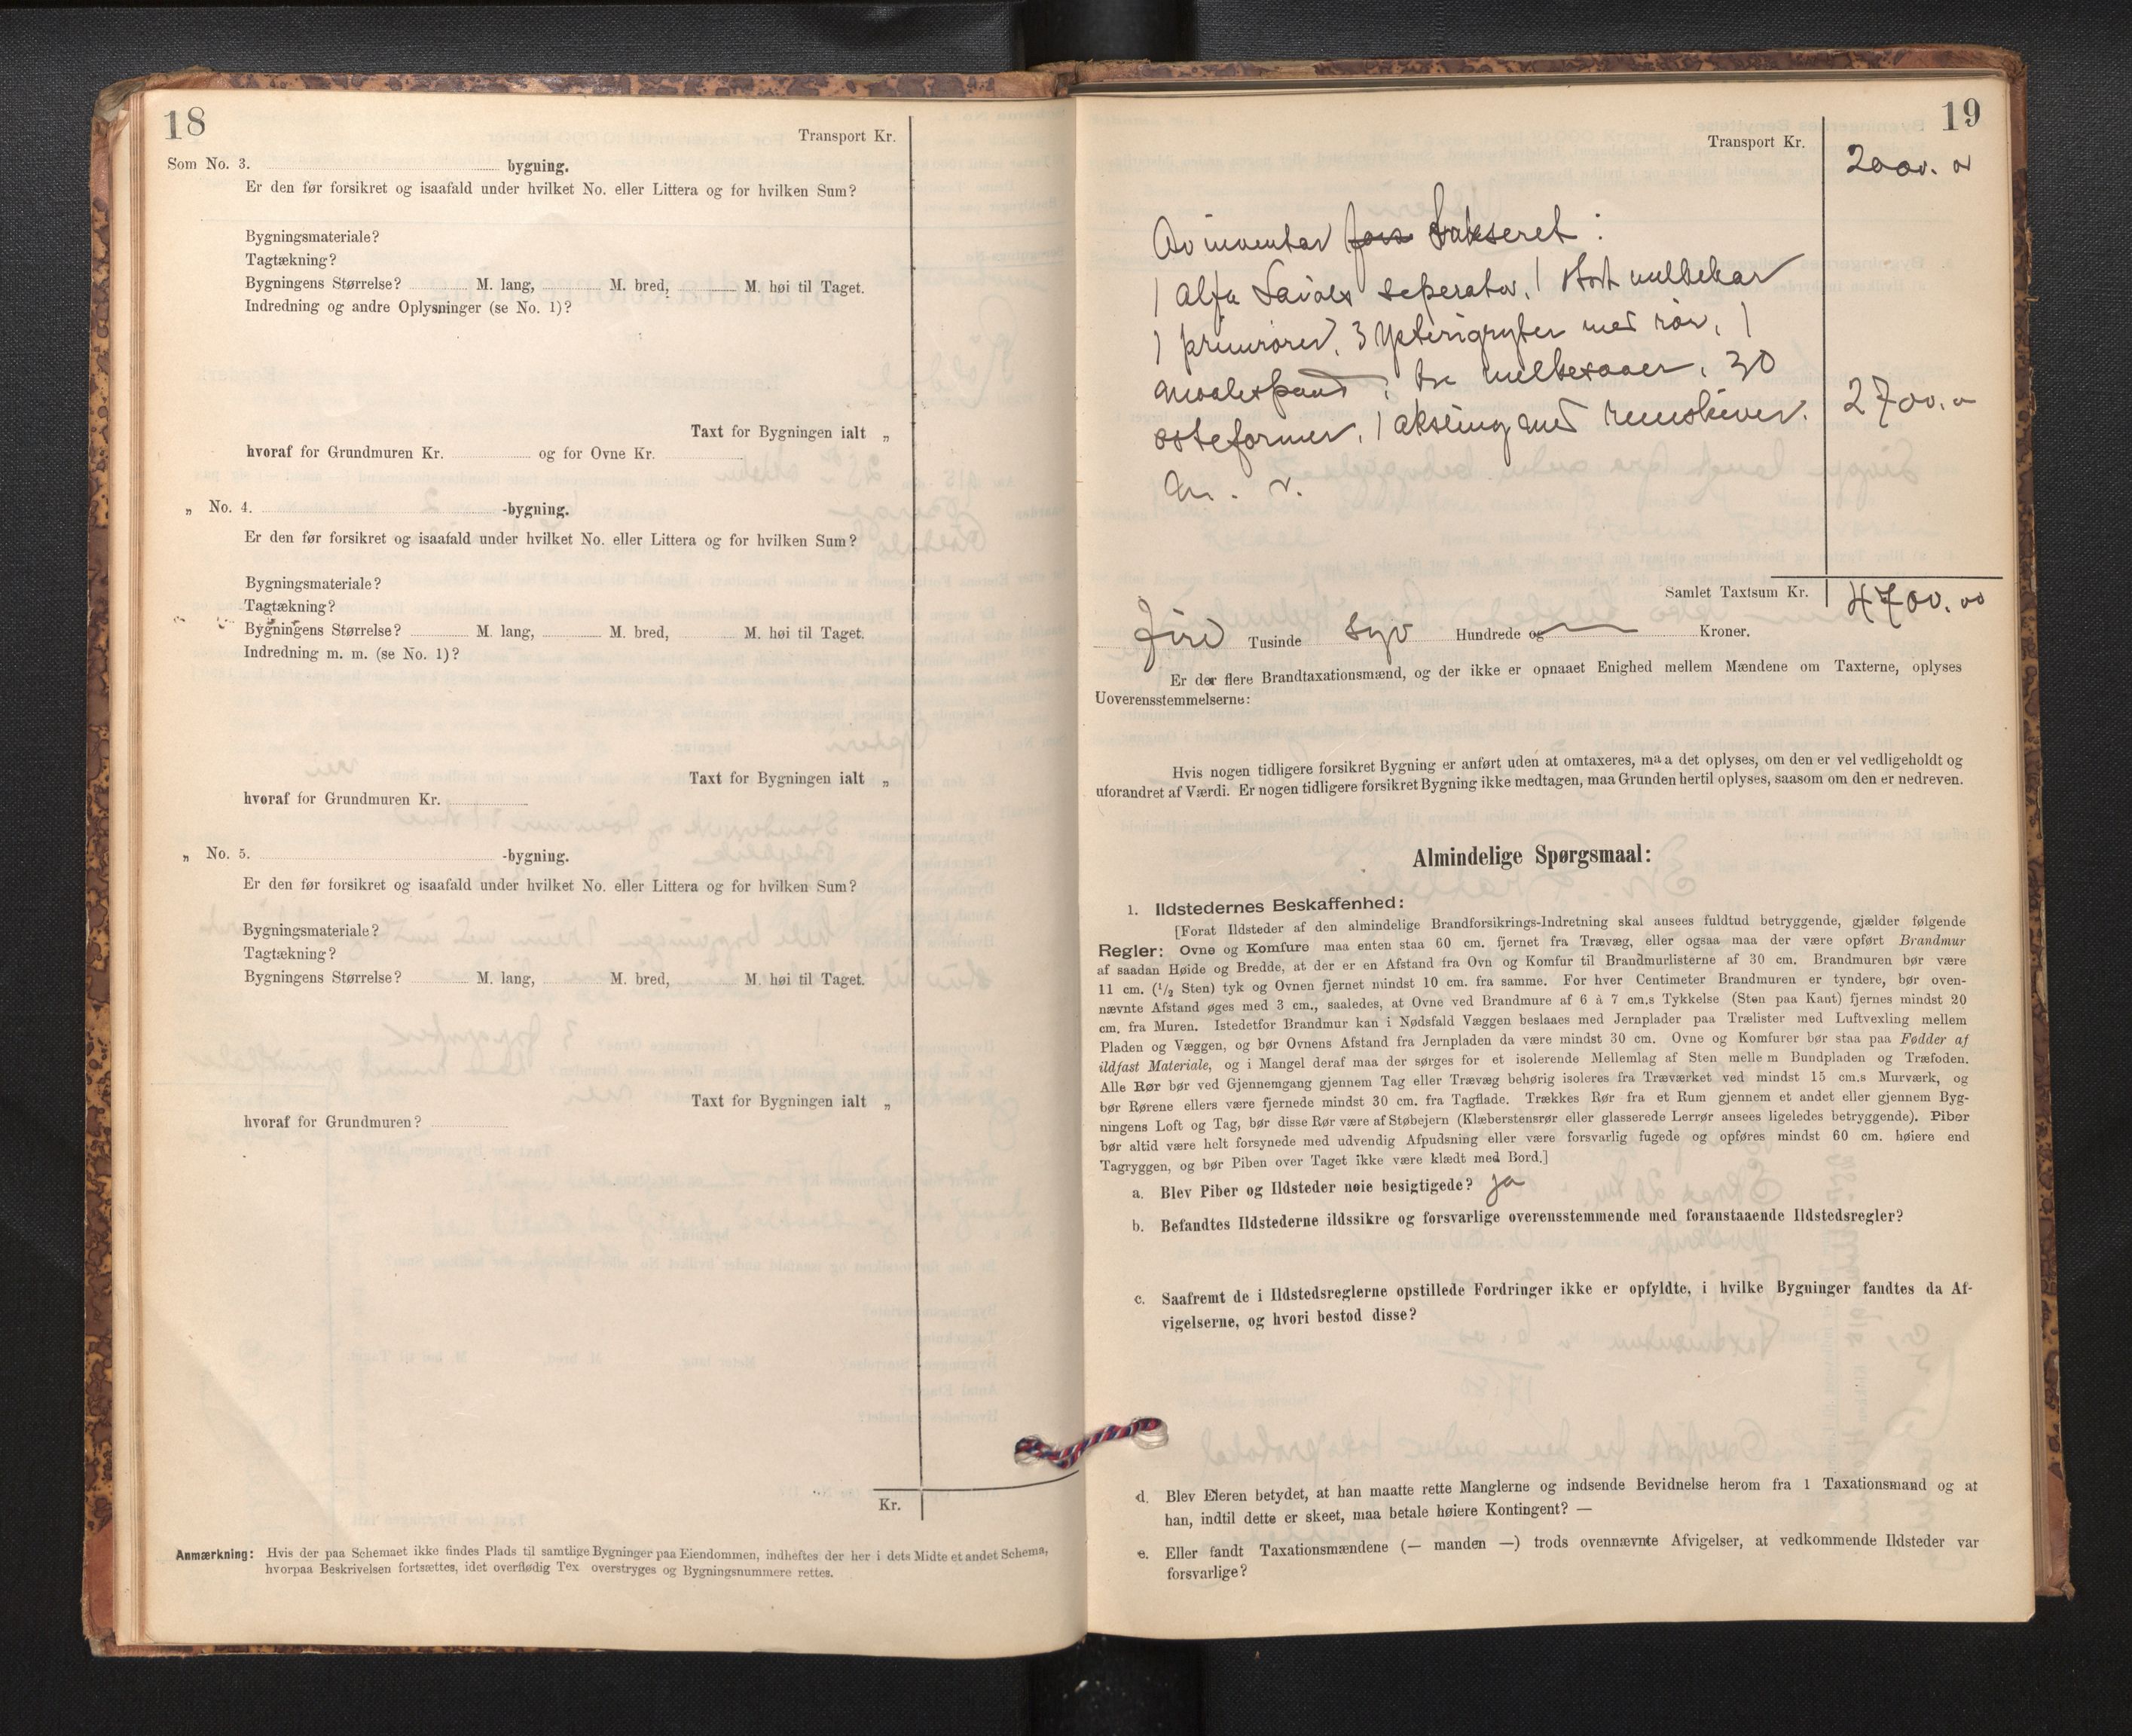 18
Transport Kr.
Som No. 3. bygning.
Er den før forsikret og isaafald under hvilket No. eller Littera og for hvilken Sum?
Bygningsmateriale?
Tagtækning?
Bygningens Størrelse? M. lang, M. bred, M. høi til Taget.
Indredning og andre Oplysninger (se No. 1)?
Taxt for Bygningen ialt „
hvoraf for Grundmuren Kr. og for Ovne Kr.
„ No. 4. -bygning.
Er den før forsikret og isaafald under hvilket No. eller Littera og for hvilken Sum?
Bygningsmateriale?
Tagtækning?
Bygningens Størrelse? M. lang, M. bred, M. høi til Taget.
Indredning m. m. (se No. 1)?
Taxt for Bygningen ialt „
hvoraf for Grundmuren Kr.
„ No. 5. -bygning.
Er den før forsikret og isaafald under hvilket No. eller Littera og for hvilken Sum?
Bygningsmateriale?
Tagtækning?
Bygningens Størrelse? M. lang, M. bred, M. høi til Taget.
Taxt for Bygningen ialt „
hvoraf for Grundmuren?
Kr.
Anmærkning: Hvis der paa Schemaet ikke findes Plads til samtlige Bygninger paa Eiendommen, indheftes der her i dets Midte et andet Schema,
hvorpaa Beskrivelsen fortsættes, idet overflødig Tex overstryges og Bygningsnummere rettes.
19
Transport Kr. 2000.00
Av inventar takseret:
1 Alfa Lavals seperator, 1 stort melkekar
1 3 Ysterigryter med rør, 1
melkevaaer, 30
osteformer, 1 aksling med remskiver. 2700.00
m. v.
Samlet Taxtsum Kr. 4700.00
Fire Tusinde syv Hundrede og — Kroner.
Er der flere Brandtaxationsmænd, og der ikke er opnaaet Enighed mellem Mændene om Taxterne, oplyses
Uoverensstemmelserne:
Hvis nogen tidligere forsikret Bygning er anført uden at omtaxeres, maa det oplyses, om den er vel vedligeholdt og
uforandret af Værdi. Er nogen tidligere forsikret Bygning ikke medtagen, maa Grunden hertil oplyses, saasom om den er nedreven.
Almindelige Spørgsmaal:
1. Ildstedernes Beskaffenhed:
[Forat Ildsteder af den almindelige Brandforsikrings-Indretning skal ansees fuldtud betryggende, gjælder følgende
Regler: Ovne og Komfure maa enten staa 60 cm. fjernet fra Trævæg, eller ogsaa maa der være opført Brandmur
af saadan Høide og Bredde, at der er en Afstand fra Ovn og Komfur til Brandmurlisterne af 30 cm. Brandmuren bør være
11 cm. (1/2 Sten) tyk og Ovnen fjernet mindst 10 cm. fra samme. For hver Centimeter Brandmuren er tyndere, bør oven-
nævnte Afstand øges med 3 cm., saaledes, at Ovne ved Brandmure af 6 à 7 cm.s Tykkelse (Sten paa Kant) fjernes mindst 20
cm. fra Muren. Istedetfor Brandmur kan i Nødsfald Væggen beslaaes med Jernplader paa Trælister med Luftvexling mellem
Pladen og Væggen, og bør Ovnens Afstand fra Jernpladen da være mindst 30 cm. Ovne og Komfurer bør staa paa Fødder af
ildfast Materiale, og i Mangel deraf maa der sørges for et isolerende Mellemlag af Sten mellem Bundpladen og Træfoden.
Alle Rør bør ved Gjennemgang gjennem Tag eller Trævæg behørig isoleres fra Træværket ved mindst 15 cm.s Murværk, og
bør Rørene ellers være fjernede mindst 30 cm. fra Tagflade. Trækkes Rør fra et Rum gjennem et andet eller gjennem Byg-
ningens Loft og Tag, bør disse Rør være af Støbejern (Klæberstensrør eller glasserede Lerrør ansees ligeledes betryggende). Piber
bør altid være helt forsynede med udvendig Afpudsning eller være forsvarlig fugede og opføres mindst 60 cm. høiere end
Tagryggen, og bør Piben over Taget ikke være klædt med Bord.]
a. Blev Piber og Ildsteder nøie besigtigede? ja
b. Befandtes Ildstederne ildssikre og forsvarlige overensstemmende med foranstaaende Ildstedsregler?
c. Saafremt de i Ildstedsreglerne opstillede Fordringer ikke er opfyldte, i hvilke Bygninger fandtes da Af-
vigelserne, og hvori bestod disse?
d. Blev Eieren betydet, at han maatte rette Manglerne og indsende Bevidnelse herom fra 1 Taxationsmand og at
han, indtil dette er skeet, maa betale høiere Kontingent? —
e. Eller fandt Taxationsmændene (— manden —) trods ovennævnte Afvigelser, at vedkommende Ildsteder var
forsvarlige?